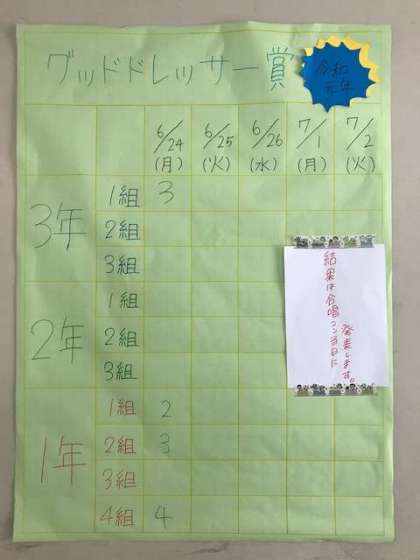 グッドドレッサー賞
令和
元年
6/24 6/25 6/26 7/1 7/2
(月) (火) (水) (月) (火)
3年
1組 3
2組
3組
2年
1組
2組
3組
1年
1組 2
2組 3
3組
4組 4
結果は合唱コン当日に
発表します。